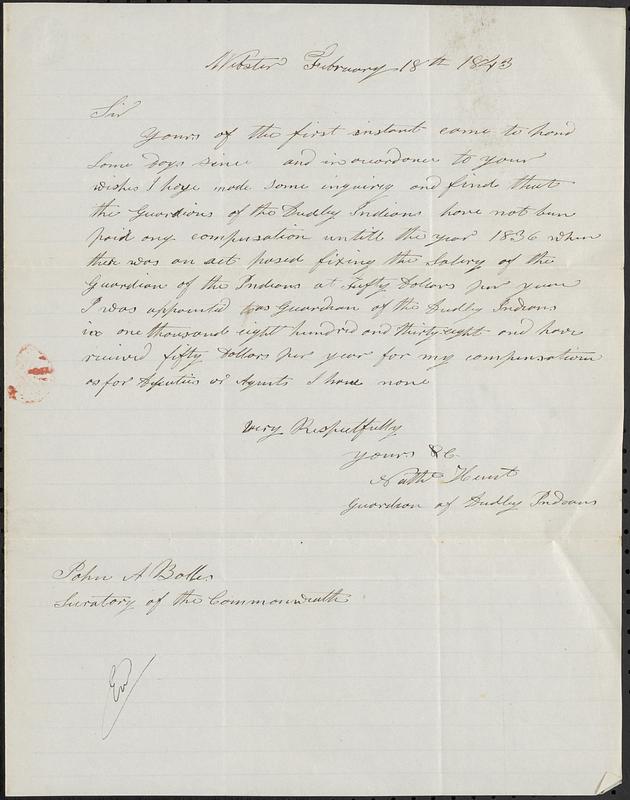 Webster February 18th 1843
Sir
Yours of the first instant came to hand
some days since and in acordance to your
wishes I have made some inquiry and find that
the Guardians of the Dudley Indians have not been
paid any compensation untill the year 1836 when
their was an act passed fixing the Salery of the
Guardian of the Indians at Fifty Dollars per year
I was appointed as Guardian of the Dudley Indians
in one thousand eight hundred and thirty eight and have
recieved fifty Dollars per year for my compensation
as for Deputies or Agents I have none
Very Respectfully
Yours &c
Nathl Hunt
Guardian of Dudley Indians
John A Bolles
Secratory of the Commonwealth